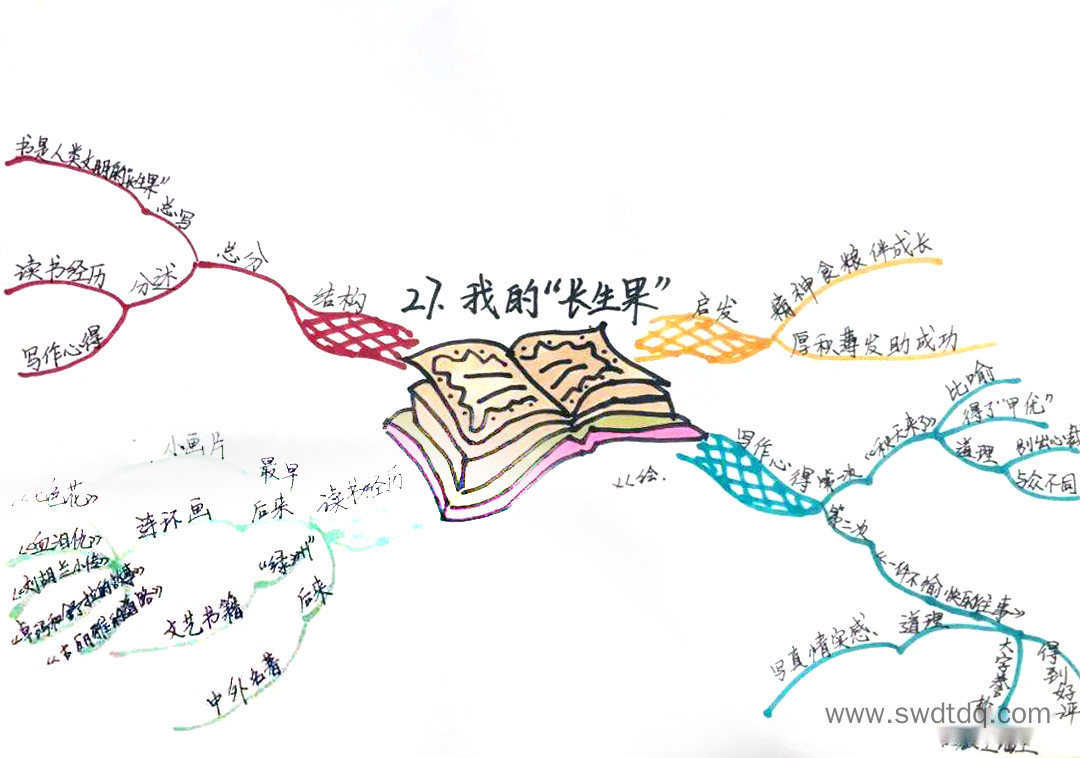 27.我的“长生果”
结构
总分
总写
书是人类文明的“长生果”
分述
读书经历
写作心得
启发
精神食粮 伴成长
厚积薄发助成功
写作心得
第一次
《秋天来了》
比喻
得了“甲优”
道理
别出心裁
与众不同
第二次
《一件不愉快的往事》
道理
写真情实感
得到好评
读书经历
最早
小画片
后来
连环画
《七色花》
《血泪仇》
《刘胡兰小传》
《卓玛和舒拉的故事》
《古丽雅的道路》
“绿洲”
文艺书籍
后来
中外名著
绘.
www.swdtdq.com